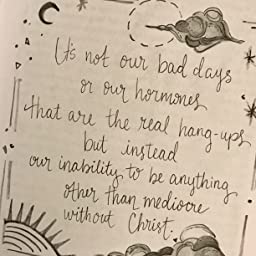 It's not our bad days
or our hormones
that are the real hang-ups,
but instead
our inability to be anything
other than mediocre
without Christ.